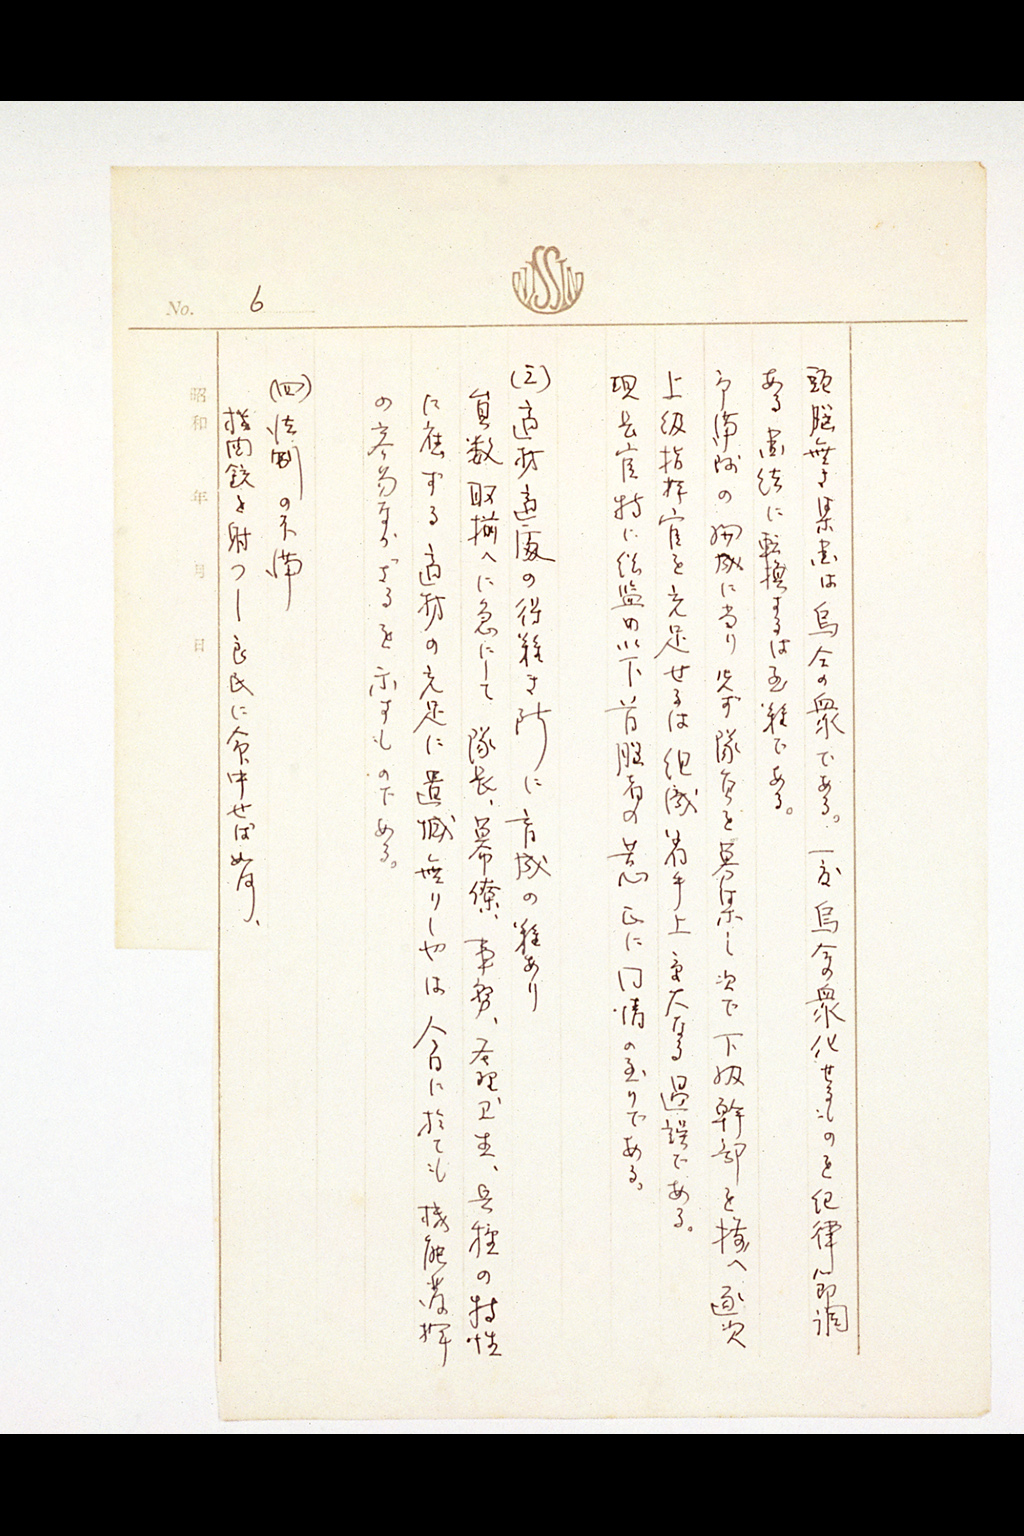 NISSIN
No. 6
昭和 年 月 日
頭脳無き集団は烏合の衆である。一度烏合の衆化せるものを紀律節調
ある団結に転換するは至難である。
予備隊の編成に当り先ず隊員を募集し次で下級幹部を構へ逐次
上級指揮官を充足せるは組織着手上重大なる過誤である。
現長官特に総監め以下首脳者の苦心正に同情の至りである。
(三)適材適処の得難き所に育成の難あり
員数取揃へに急にして隊長、幕僚、事務、管理卫生、兵種の特性
に応する適材の充足に遺憾無りしやは今日に於ても機能発揮
の容易ならざるを示すものである。
(四)法制の不備
機関銃を射つし良民に命中せば如何、